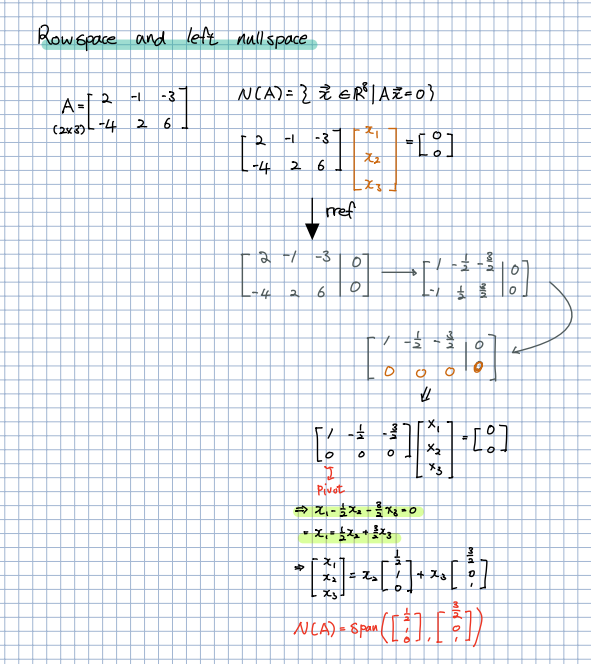 Rowspace and left nullspace
A = [2 -1 -3; -4 2 6]
(2x3)
N(A) = { x⃗ ∈ R³ | Ax⃗ = 0 }
[2 -1 -3; -4 2 6] [x₁; x₂; x₃] = [0; 0]
rref
[2 -1 -3 | 0; -4 2 6 | 0] → [1 -1/2 -3/2 | 0; -1 1/2 3/2 | 0]
[1 -1/2 -3/2 | 0; 0 0 0 | 0]
⇓
[1 -1/2 -3/2; 0 0 0] [x₁; x₂; x₃] = [0; 0]
Pivot
⇒ x₁ - 1/2 x₂ - 3/2 x₃ = 0
= x₁ = 1/2 x₂ + 3/2 x₃
⇒ [x₁; x₂; x₃] = x₂ [1/2; 1; 0] + x₃ [3/2; 0; 1]
N(A) = span([1/2; 1; 0], [3/2; 0; 1])